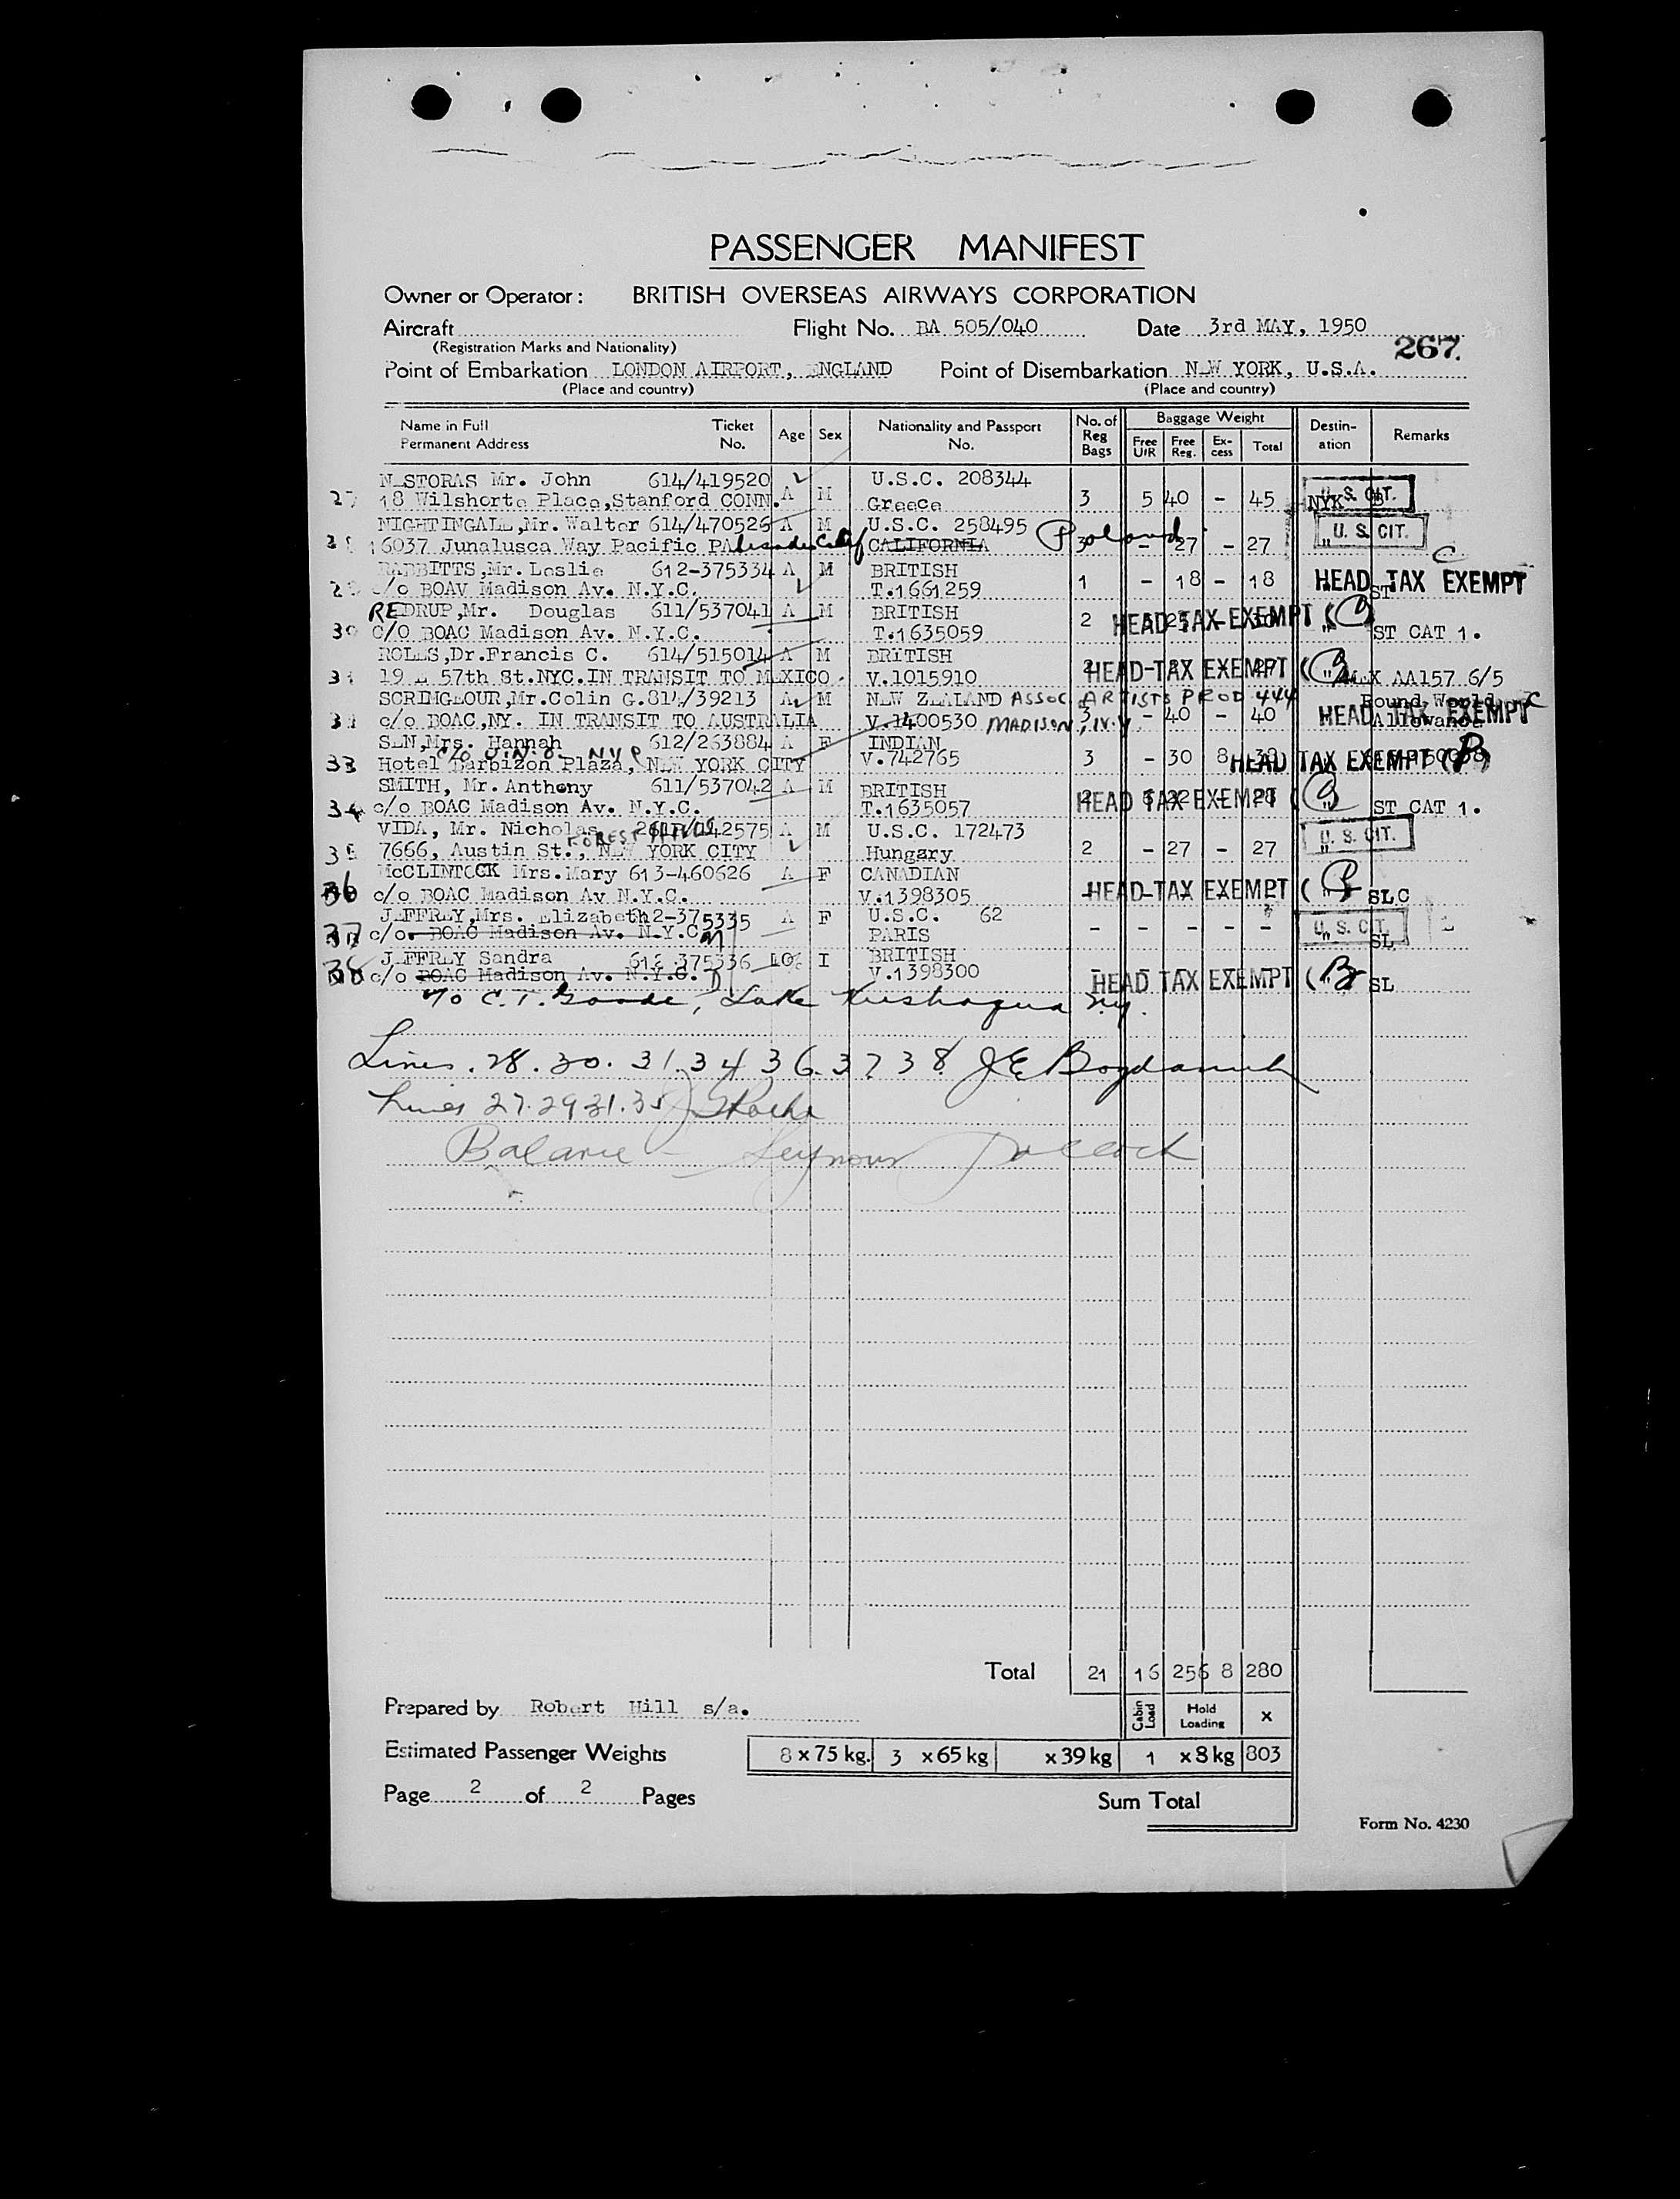 PASSENGER MANIFEST
Owner or Operator: BRITISH OVERSEAS AIRWAYS CORPORATION
Aircraft Flight No. BA 505/040 Date 3rd MAY, 1950
(Registration Marks and Nationality)
267.
Point of Embarkation LONDON AIRPORT, ENGLAND Point of Disembarkation NEW YORK, U.S.A.
(Place and country) (Place and country)
Name in Full Permanent Address Ticket No. Age Sex Nationality and Passport No. No. of Reg Bags Baggage Weight Free U/R Free Reg. Ex-cess Total Destin-ation Remarks
NESTORAS Mr. John 614/419520 U.S.C. 208344 U.S. CIT.
27 18 Wilshorte Place,Stanford CONN. A M Greece 3 5 40 - 45 NYK
NIGHTINGALE,Mr. Walter 614/470526 A M U.S.C. 258495 Poland U.S. CIT.
28 16037 Junalusca Way Pacific PAlisades Calif CALIFORNIA 3 - 27 - 27 "
C
RABBITTS,Mr. Leslie 612-375334 A M BRITISH
29 c/o BOAV Madison Av. N.Y.C. T.1661259 1 - 18 - 18 HEAD TAX EXEMPT ST
REDRUP,Mr. Douglas 611/537041 A M BRITISH
30 C/O BOAC Madison Av. N.Y.C. T.1635059 2 HEAD TAX EXEMPT ( " ST CAT 1.
ROLES,Dr.Francis C. 614/515014 A M BRITISH
31 19 E 57th St.NYC.IN TRANSIT TO MEXICO. V.1015910 2 HEAD TAX EXEMPT ( " MEX AA157 6/5
SCRINGEOUR,Mr.Colin G.814/39213 A M NEW ZEALAND ASSOC ARTISTS PROD 444 Round World
c/o BOAC,NY. IN TRANSIT TO AUSTRALIA V.1400530 MADISON, N.Y. 3 - 40 - 40 HEAD TAX EXEMPT C Allowance
SEN,Mrs. Hannah 612/263884 A F INDIAN
c/o U.N.O. NYC
33 Hotel Barbizon Plaza, NEW YORK CITY V.742765 3 - 30 8 38 HEAD TAX EXEMPT (
SMITH, Mr. Anthony 611/537042 A M BRITISH
34 c/o BOAC Madison Av. N.Y.C. T.1635057 2 6 22 - 28 HEAD TAX EXEMPT ( " ST CAT 1.
VIDA, Mr. Nicholas A M U.S.C. 172473 U.S. CIT.
FOREST HILLS
35 7666, Austin St., NEW YORK CITY Hungary 2 - 27 - 27 "
McCLINTOCK Mrs.Mary 613-460626 A F CANADIAN
36 c/o BOAC Madison Av N.Y.C. V.1398305 HEAD TAX EXEMPT ( SLC
JEFFREY,Mrs. Elizabeth 612-375335 A F U.S.C. 62
37 c/o. BOAC Madison Av. N.Y.C. PARIS - - - - - U.S. CIT. " SL
JEFFREY Sandra 612 375336 I BRITISH
38 c/o BOAC Madison Av. N.Y.C. V.1398300 HEAD TAX EXEMPT ( SL
c/o C.T. Goode, Lake Kushaqua N.Y.
Lines. 28. 30. 31. 34 36. 37 38. J E
Lines 27. 29 31. 35
Balance - Seymour Pollock
Total 21 16 256 8 280
Prepared by Robert Hill s/a. Cabin Load Hold Loading x
Estimated Passenger Weights 8 x 75 kg. 3 x 65 kg x 39 kg 1 x 8 kg 803
Page 2 of 2 Pages Sum Total
Form No. 4230